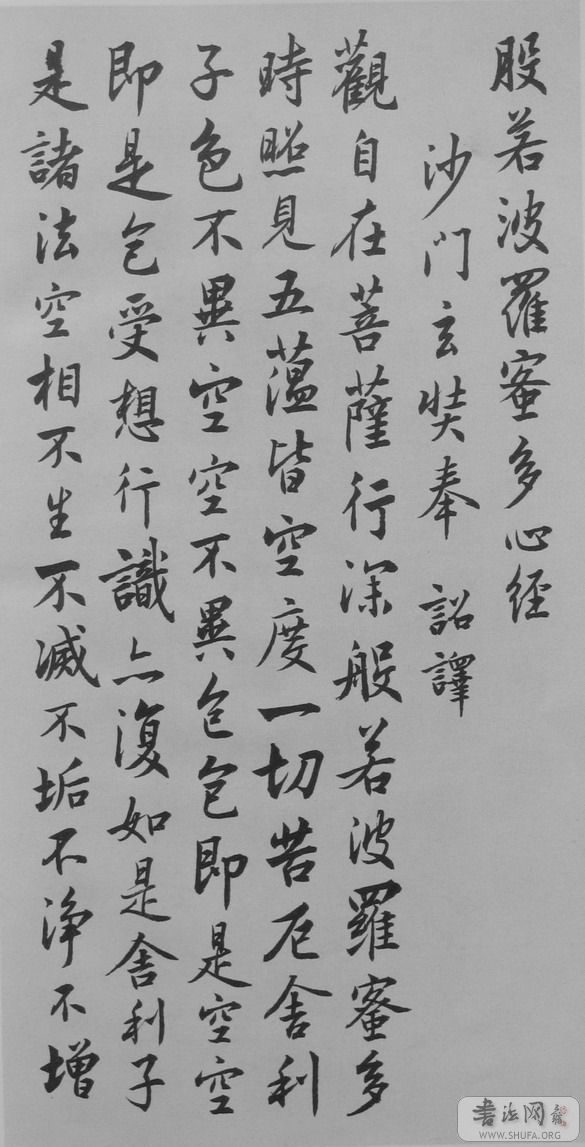 般若波羅蜜多心経
沙門玄奘奉 詔譯
觀自在菩薩行深般若波羅蜜多
時照見五蘊皆空度一切苦厄舍利
子色不異空空不異色色即是空空
即是色受想行識亦復如是舍利子
是諸法空相不生不滅不垢不净不增
書法网
WWW.SHUFA.ORG